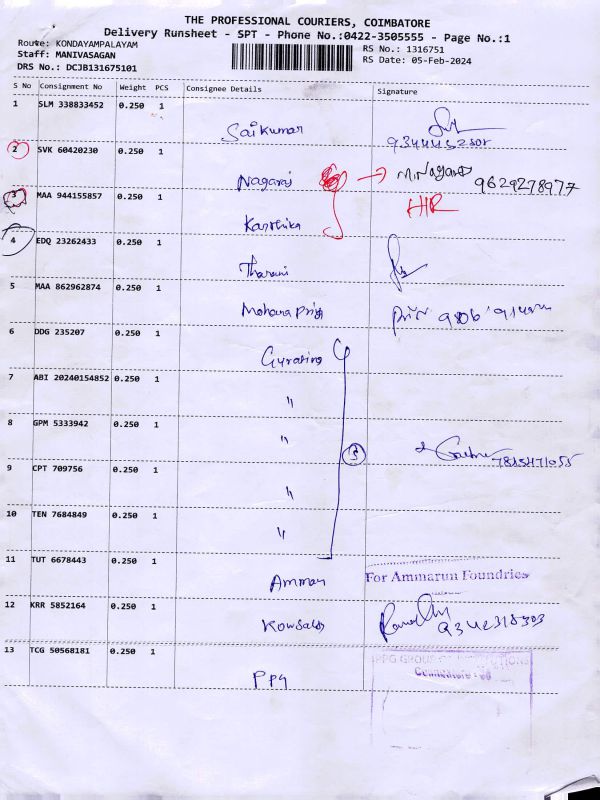 THE PROFESSIONAL COURIERS, COIMBATORE
Delivery Runsheet - SPT - Phone No.:0422-3505555 - Page No.:1
Route: KONDAYAMPALAYAM
RS No.: 1316751
Staff: MANIVASAGAN
RS Date: 05-Feb-2024
DRS No.: DCJB131675101
S No Consignment No Weight PCS Consignee Details Signature
1 SLM 338833452 0.250 1
Saikumar
2 SVK 60420230 0.250 1
Nagaraj M.Nagaraj 9629278977
3 MAA 944155857 0.250 1 HR
Karthika
4 EDQ 23262433 0.250 1
Tharani
5 MAA 862962874 0.250 1
Mohana Priya
6 DDG 235207 0.250 1
7 ABI 20240154852 0.250 1
"
8 GPM 5333942 0.250 1
"
9 CPT 709756 0.250 1
"
10 TEN 7684849 0.250 1
"
11 TUT 6678443 0.250 1
Amman For Ammarun Foundries
12 KRR 5852164 0.250 1
Kowsalya 9342318303
13 TCG 50568181 0.250 1
PPG